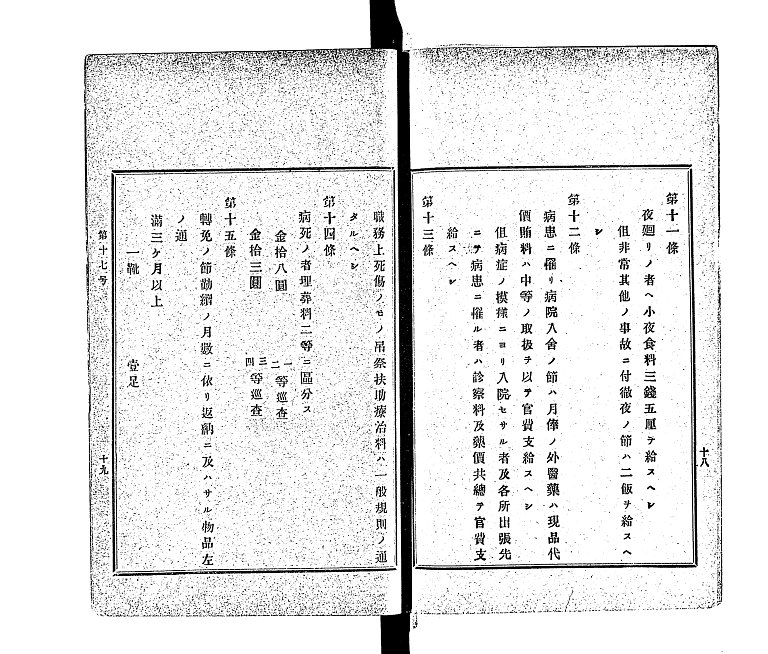 第十一條
夜廻リノ者ヘ小夜食料三錢五厘ヲ給スヘシ
但非常其他ノ事故ニ付徹夜ノ節ハ二飯ヲ給スヘ
シ
第十二條
病患ニ罹リ病院入舍ノ節ハ月俸ノ外醫藥ハ現品代
價賄料ハ中等ノ取扱ヲ以テ官費支給スヘシ
但病症ノ模樣ニヨリ入院セサル者及各所出張先
ニテ病患ニ罹ル者ハ診察料及藥價共總テ官費支
給スヘシ
第十三條
十八
職務上死傷ノモノ吊祭扶助療治料ハ一般規則ノ通
タルヘシ
第十四條
病死ノ者埋葬料二等ニ區分ス
金拾八圓 一二等巡査
金拾三圓 三四等巡査
第十五條
轉免ノ節勤續ノ月數ニ依リ返納ニ及ハサル物品左
ノ通
滿三ケ月以上
一靴 壹足
第十七号
十九